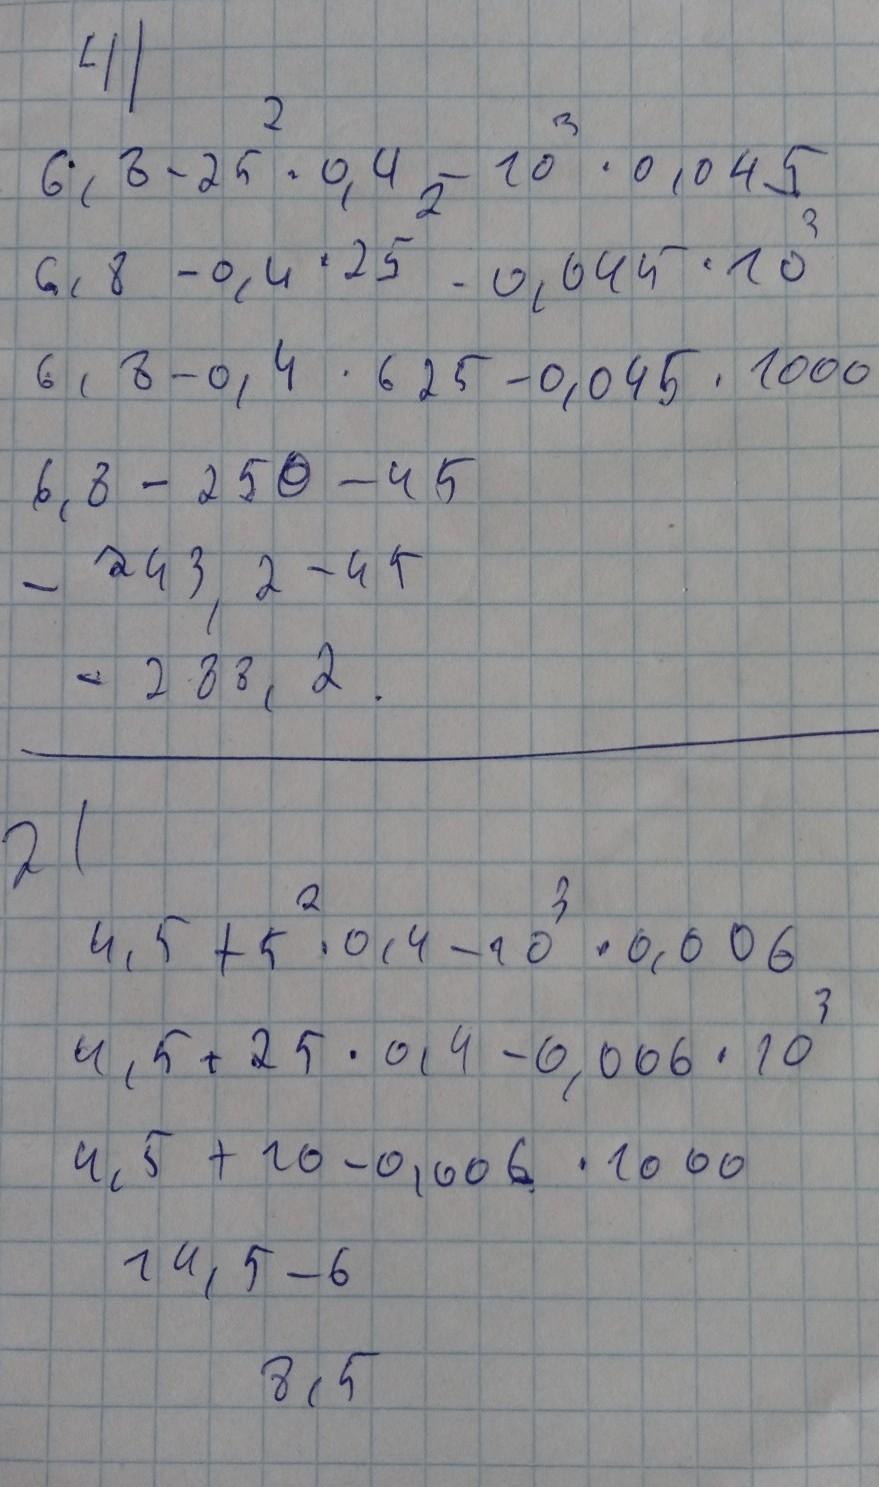 4)
6,8-25²·0,4-10³·0,045
6,8-0,4·25²-0,045·10³
6,8-0,4·625-0,045·1000
6,8-250-45
-243,2-45
-288,2.
2)
4,5+5²·0,4-10³·0,006
4,5+25·0,4-0,006·10³
4,5+10-0,006·1000
14,5-6
8,5